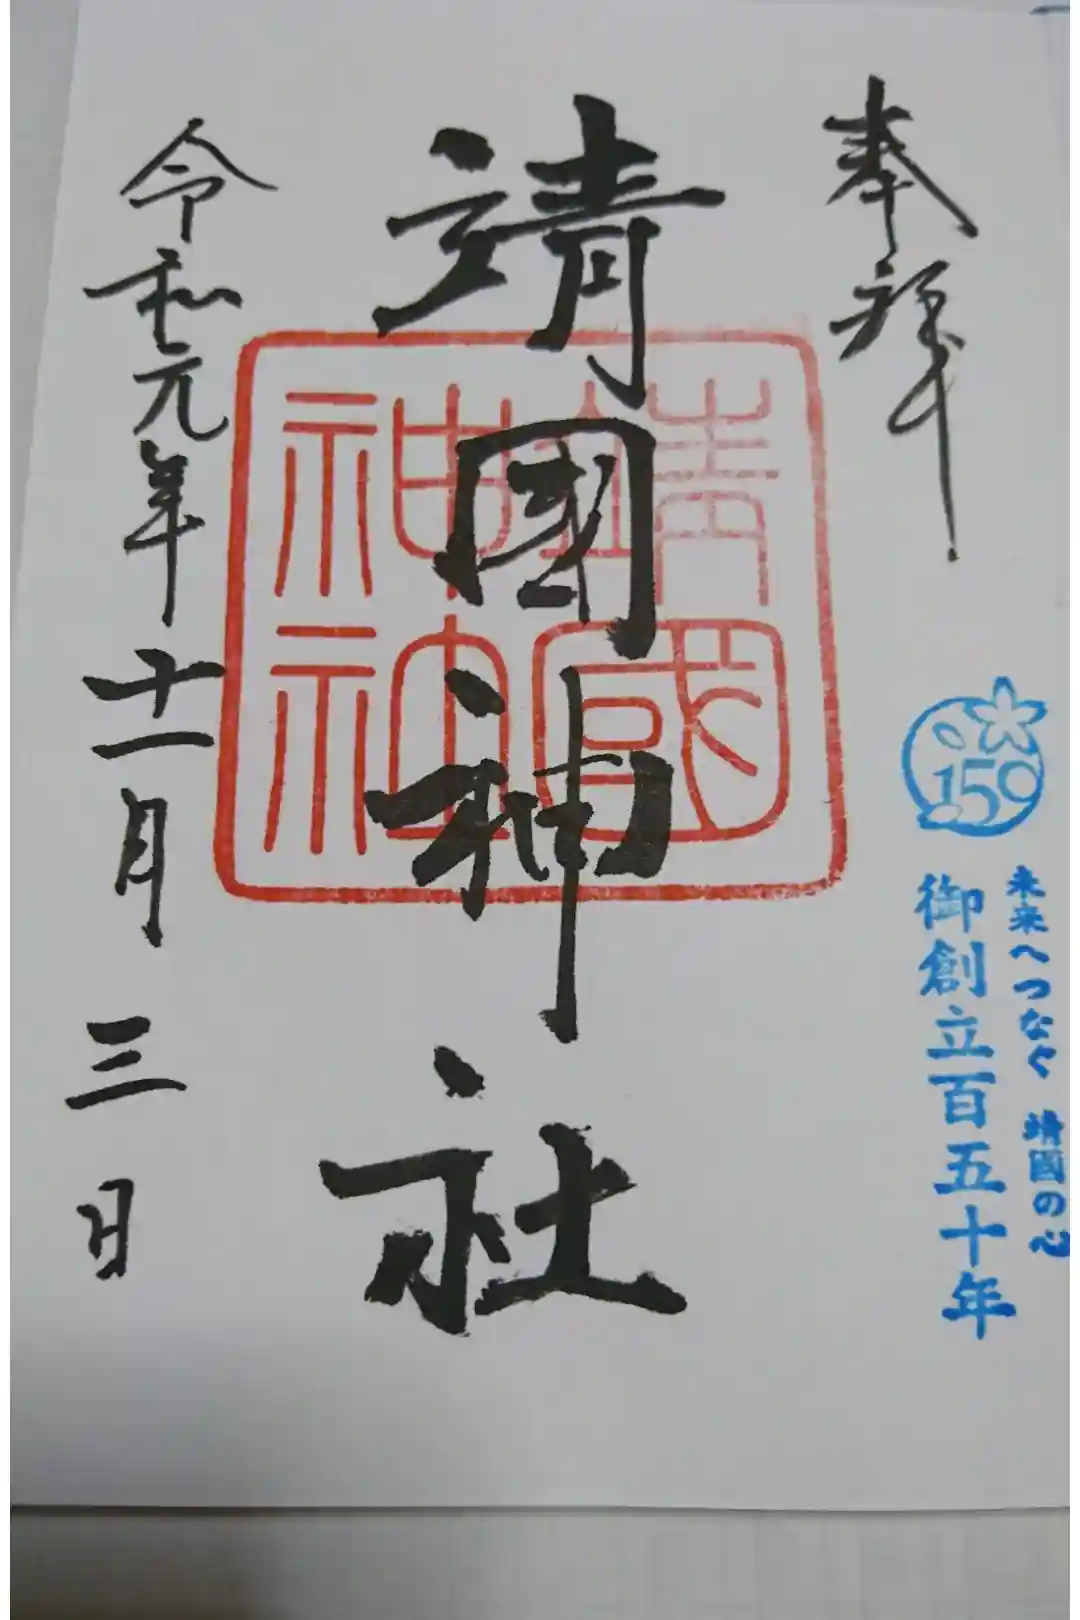 奉拝
159
未来へつなぐ 靖國の心
御創立百五十年
靖國神社
靖國
神社
令和元年十一月三日